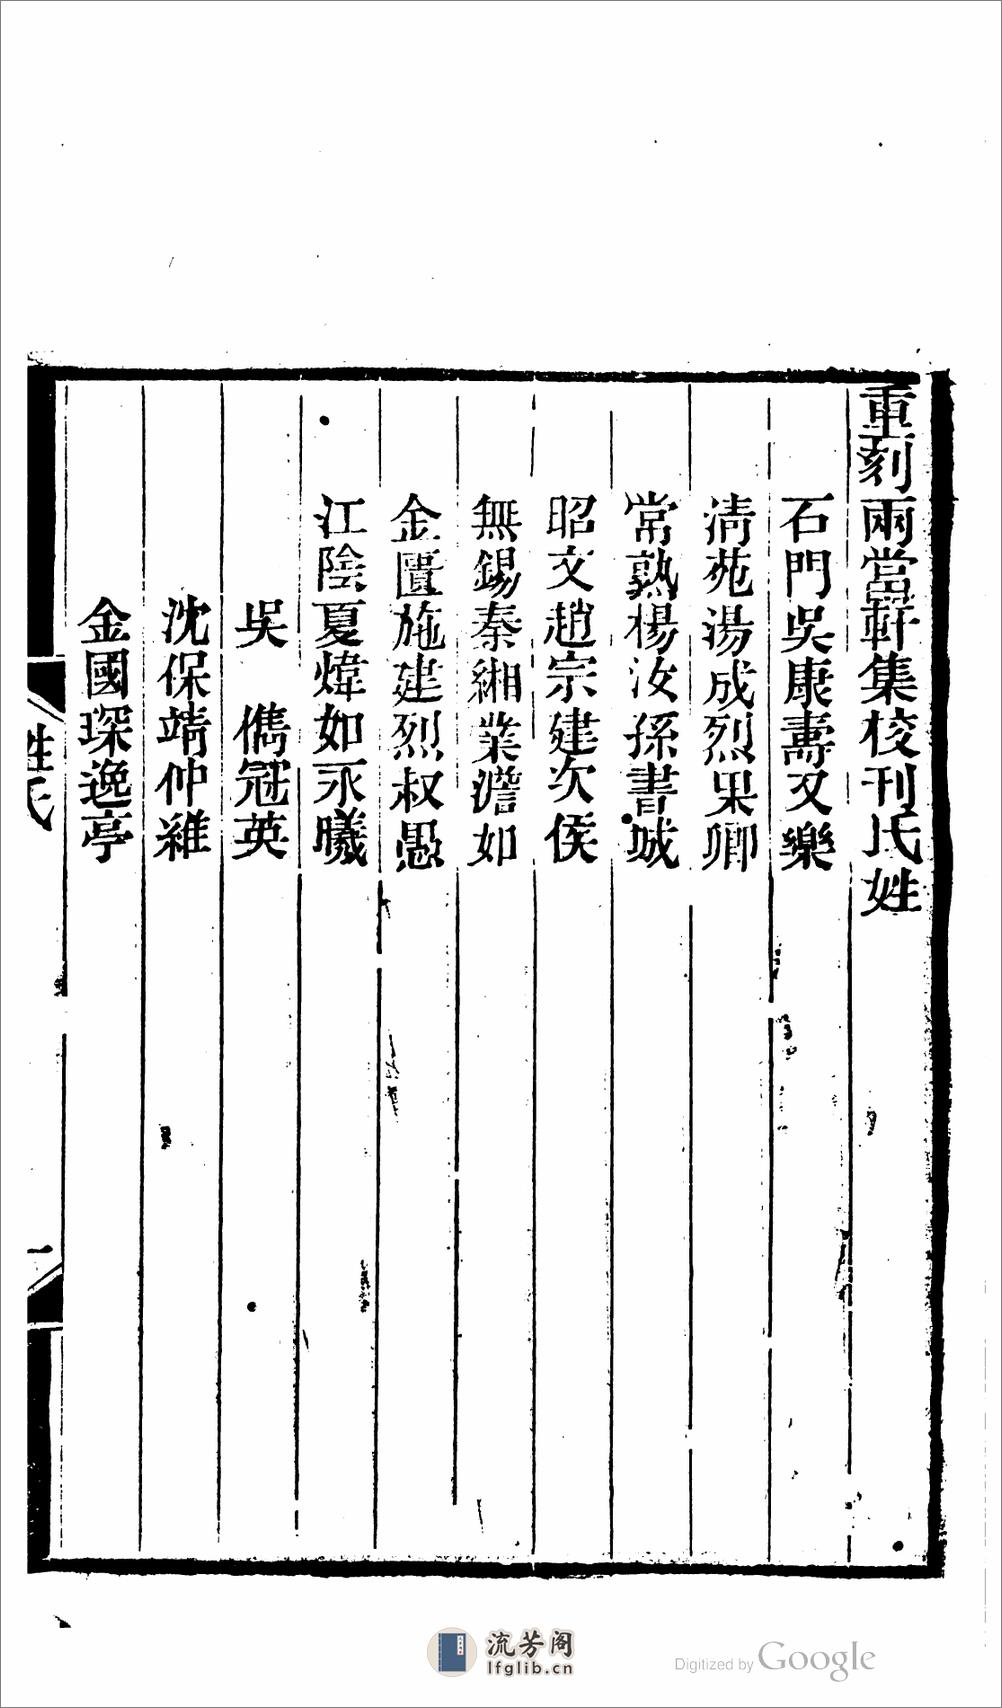 重刻兩當軒集校刊氏姓
石門吳康壽又樂
清苑湯成烈果卿
常熟楊汝孫書城
昭文趙宗建次侯
無錫秦緗業澹如
金匱施建烈叔愚
江陰夏煒如永曦
吳　儁冠英
沈保靖仲維
金國琛逸亭
姓氏
一
流芳阁
lfglib.cn
Digitized by Google